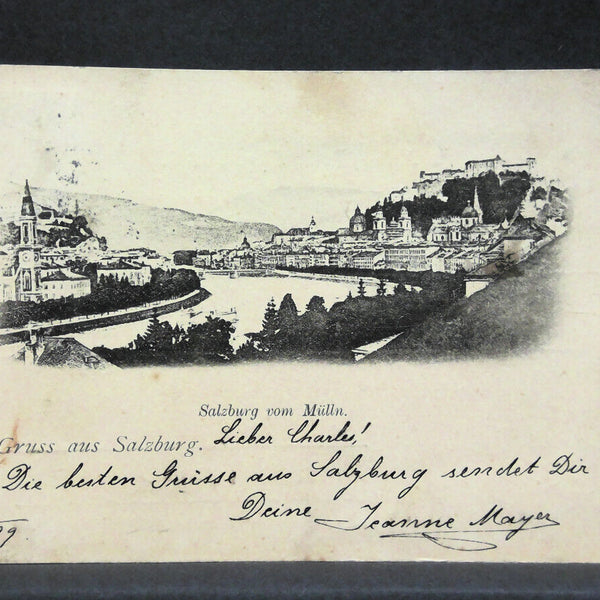 Salzburg vom Mülln.
Gruss aus Salzburg.
Lieber Charles!
Die besten Grüsse aus Salzburg sendet Dir
Deine Jeanne Mayer
99